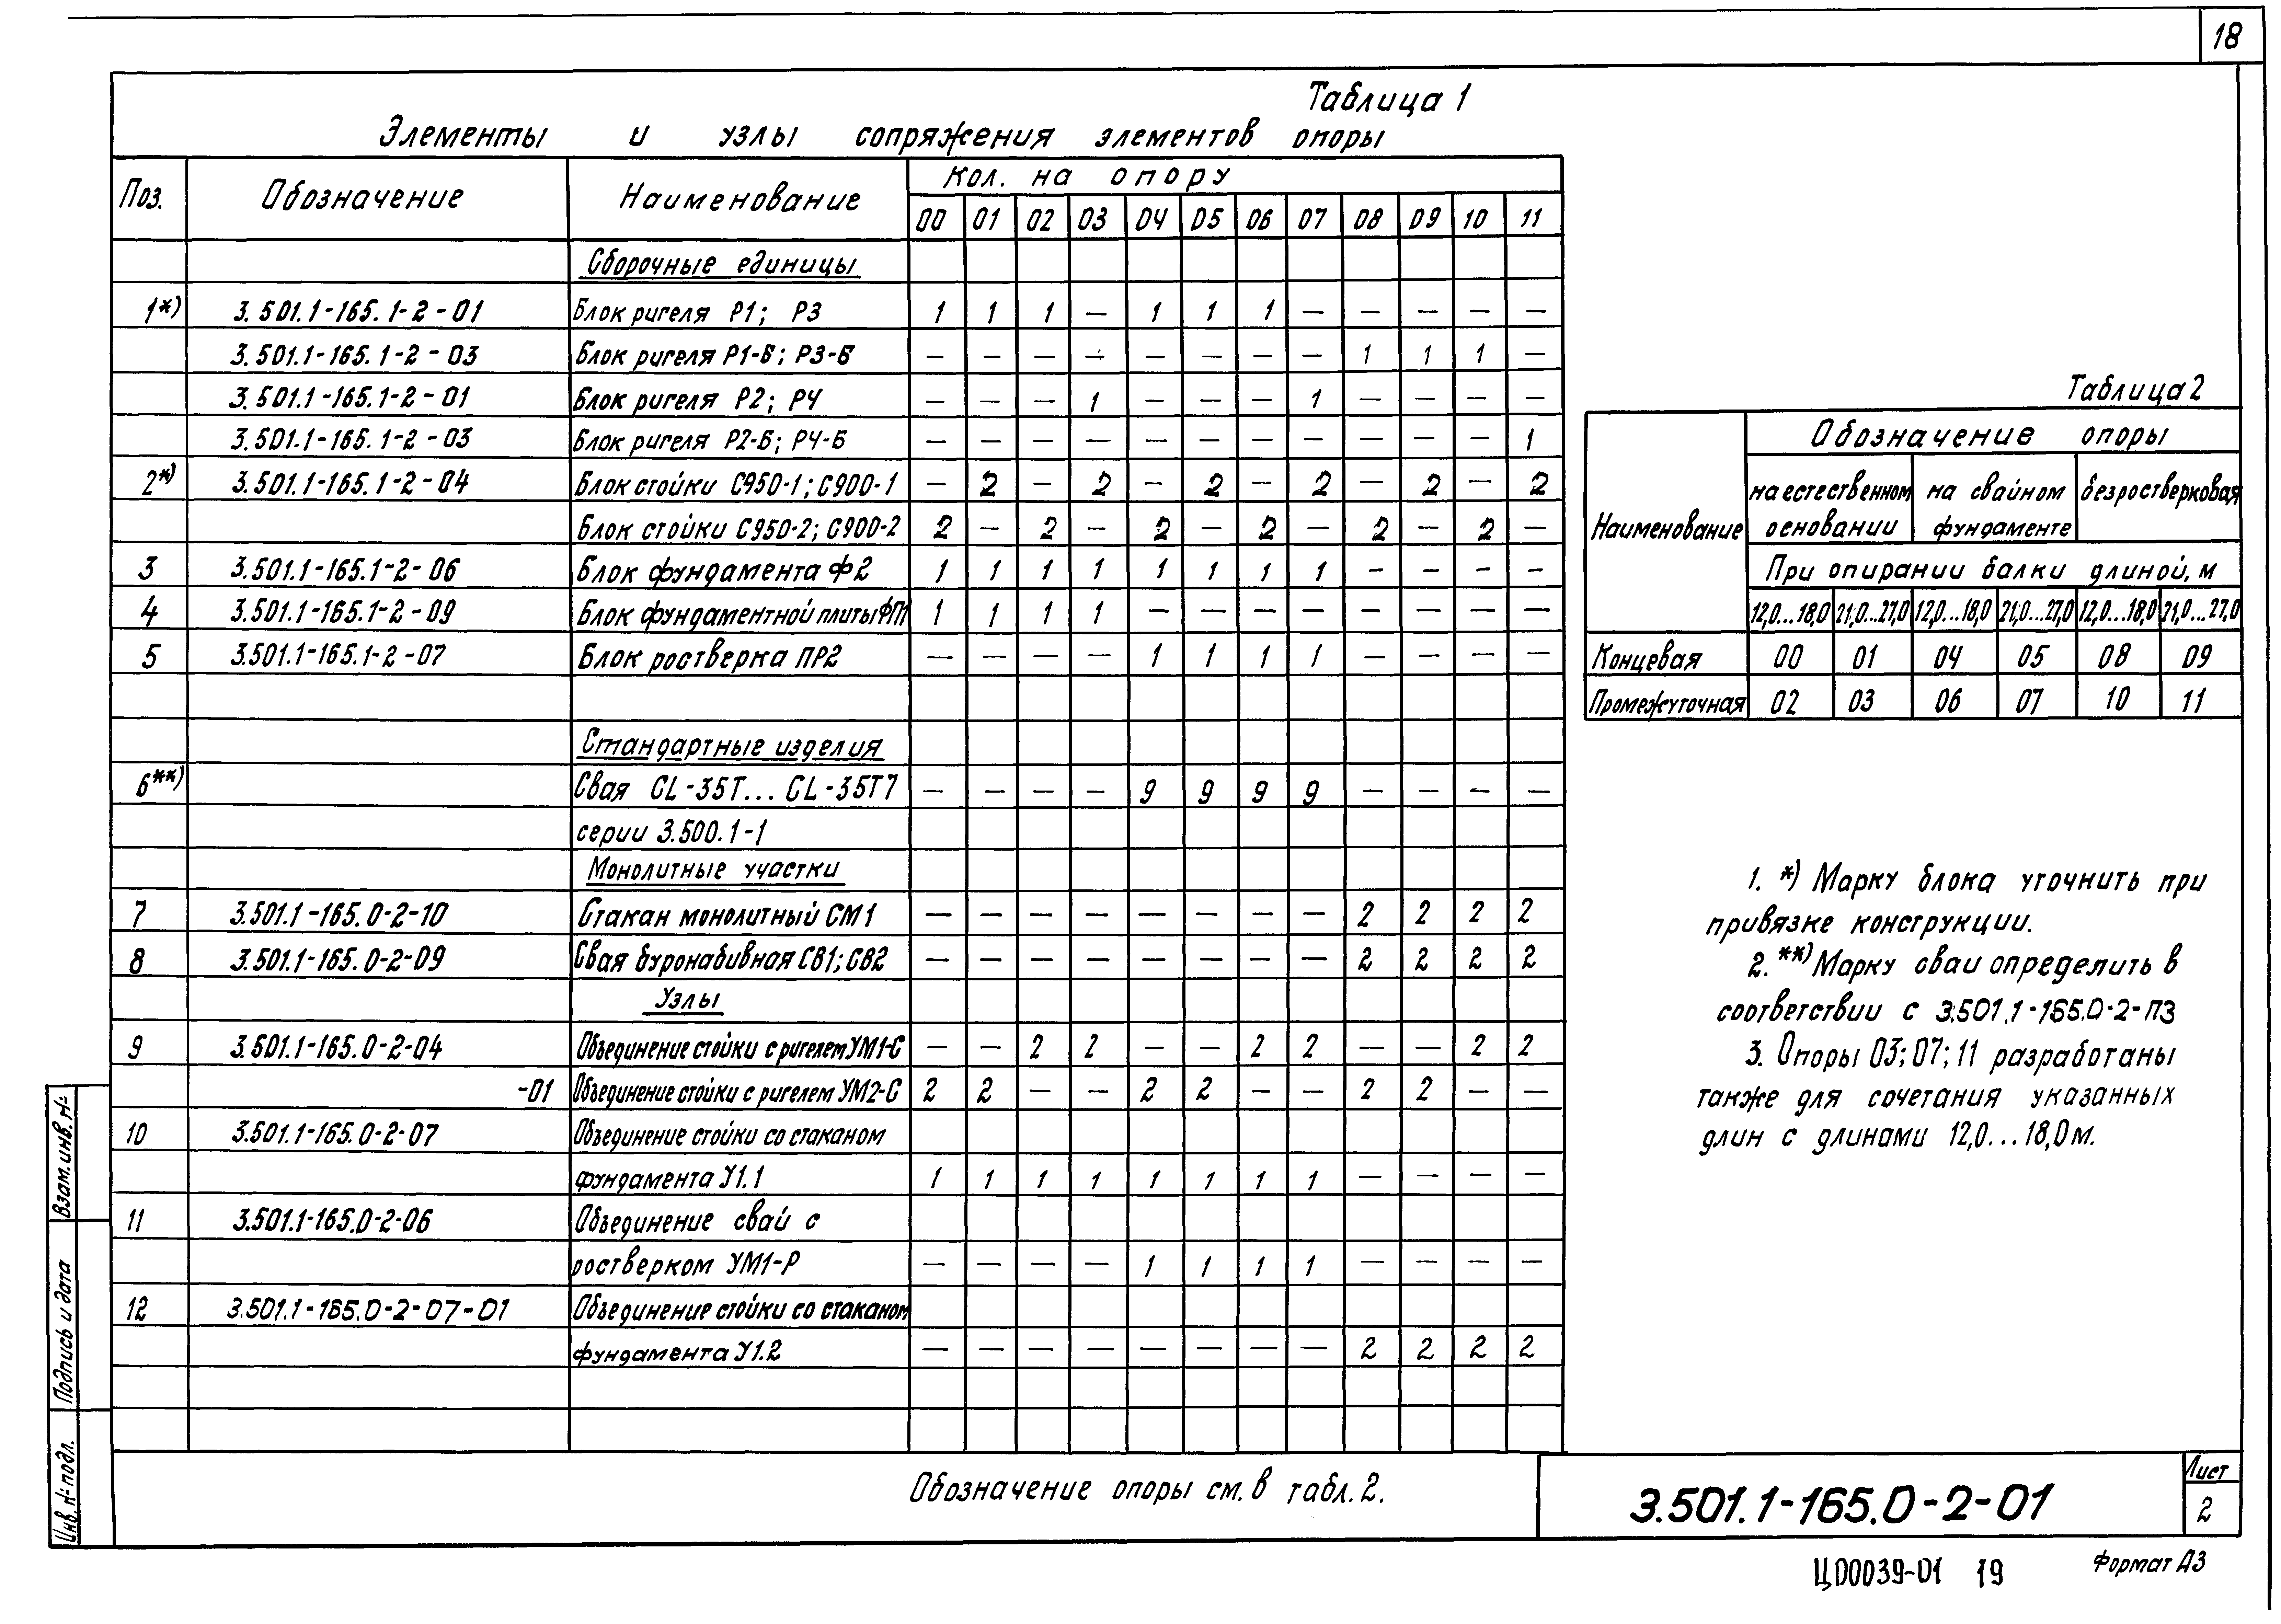 18
Таблица 1
Элементы и узлы сопряжения элементов опоры
Поз. Обозначение Наименование Кол. на опору
00 01 02 03 04 05 06 07 08 09 10 11
Сборочные единицы
1*) 3.501.1-165.1-2-01 Блок ригеля Р1; Р3 1 1 1 — 1 1 1 — — — — —
3.501.1-165.1-2-03 Блок ригеля Р1-Б; Р3-Б — — — — — — — — 1 1 1 —
3.501.1-165.1-2-01 Блок ригеля Р2; Р4 — — — 1 — — — 1 — — — —
3.501.1-165.1-2-03 Блок ригеля Р2-Б; Р4-Б — — — — — — — — — — — 1
2*) 3.501.1-165.1-2-04 Блок стойки С950-1; С900-1 — 2 — 2 — 2 — 2 — 2 — 2
Блок стойки С950-2; С900-2 2 — 2 — 2 — 2 — 2 — 2 —
3 3.501.1-165.1-2-06 Блок фундамента Ф2 1 1 1 1 1 1 1 1 — — — —
4 3.501.1-165.1-2-09 Блок фундаментной плиты ФП1 1 1 1 1 — — — — — — — —
5 3.501.1-165.1-2-07 Блок ростверка ПР2 — — — — 1 1 1 1 — — — —
Стандартные изделия
6**) Свая СL-35Т... СL-35Т7 — — — — 9 9 9 9 — — — —
серии 3.500.1-1
Монолитные участки
7 3.501.1-165.0-2-10 Стакан монолитный СМ1 — — — — — — — — 2 2 2 2
8 3.501.1-165.0-2-09 Свая буронабивная СВ1; СВ2 — — — — — — — — 2 2 2 2
Узлы
9 3.501.1-165.0-2-04 Объединение стойки с ригелем УМ1-С — — 2 2 — — 2 2 — — 2 2
-01 Объединение стойки с ригелем УМ2-С 2 2 — — 2 2 — — 2 2 — —
10 3.501.1-165.0-2-07 Объединение стойки со стаканом
фундамента У1.1 1 1 1 1 1 1 1 1 — — — —
11 3.501.1-165.0-2-06 Объединение свай с
ростверком УМ1-Р — — — — 1 1 1 1 — — — —
12 3.501.1-165.0-2-07-01 Объединение стойки со стаканом
фундамента У1.2 — — — — — — — — 2 2 2 2
Обозначение опоры см. в табл. 2.
Таблица 2
Наименование Обозначение опоры
на естественном основании на свайном фундаменте безростверковая
При опирании балки длиной, м
12,0...18,0 21,0...27,0 12,0...18,0 21,0...27,0 12,0...18,0 21,0...27,0
Концевая 00 01 04 05 08 09
Промежуточная 02 03 06 07 10 11
1. *) Марку блока уточнить при
привязке конструкции.
2. **) Марку сваи определить в
соответствии с 3.501.1-165.0-2-ПЗ
3. Опоры 03; 07; 11 разработаны
также для сочетания указанных
длин с длинами 12,0...18,0м.
Взам. инв. №
Подпись и дата
Инв. № подл.
3.501.1-165.0-2-01
Лист
2
ЦД0039-01 19
Формат А3